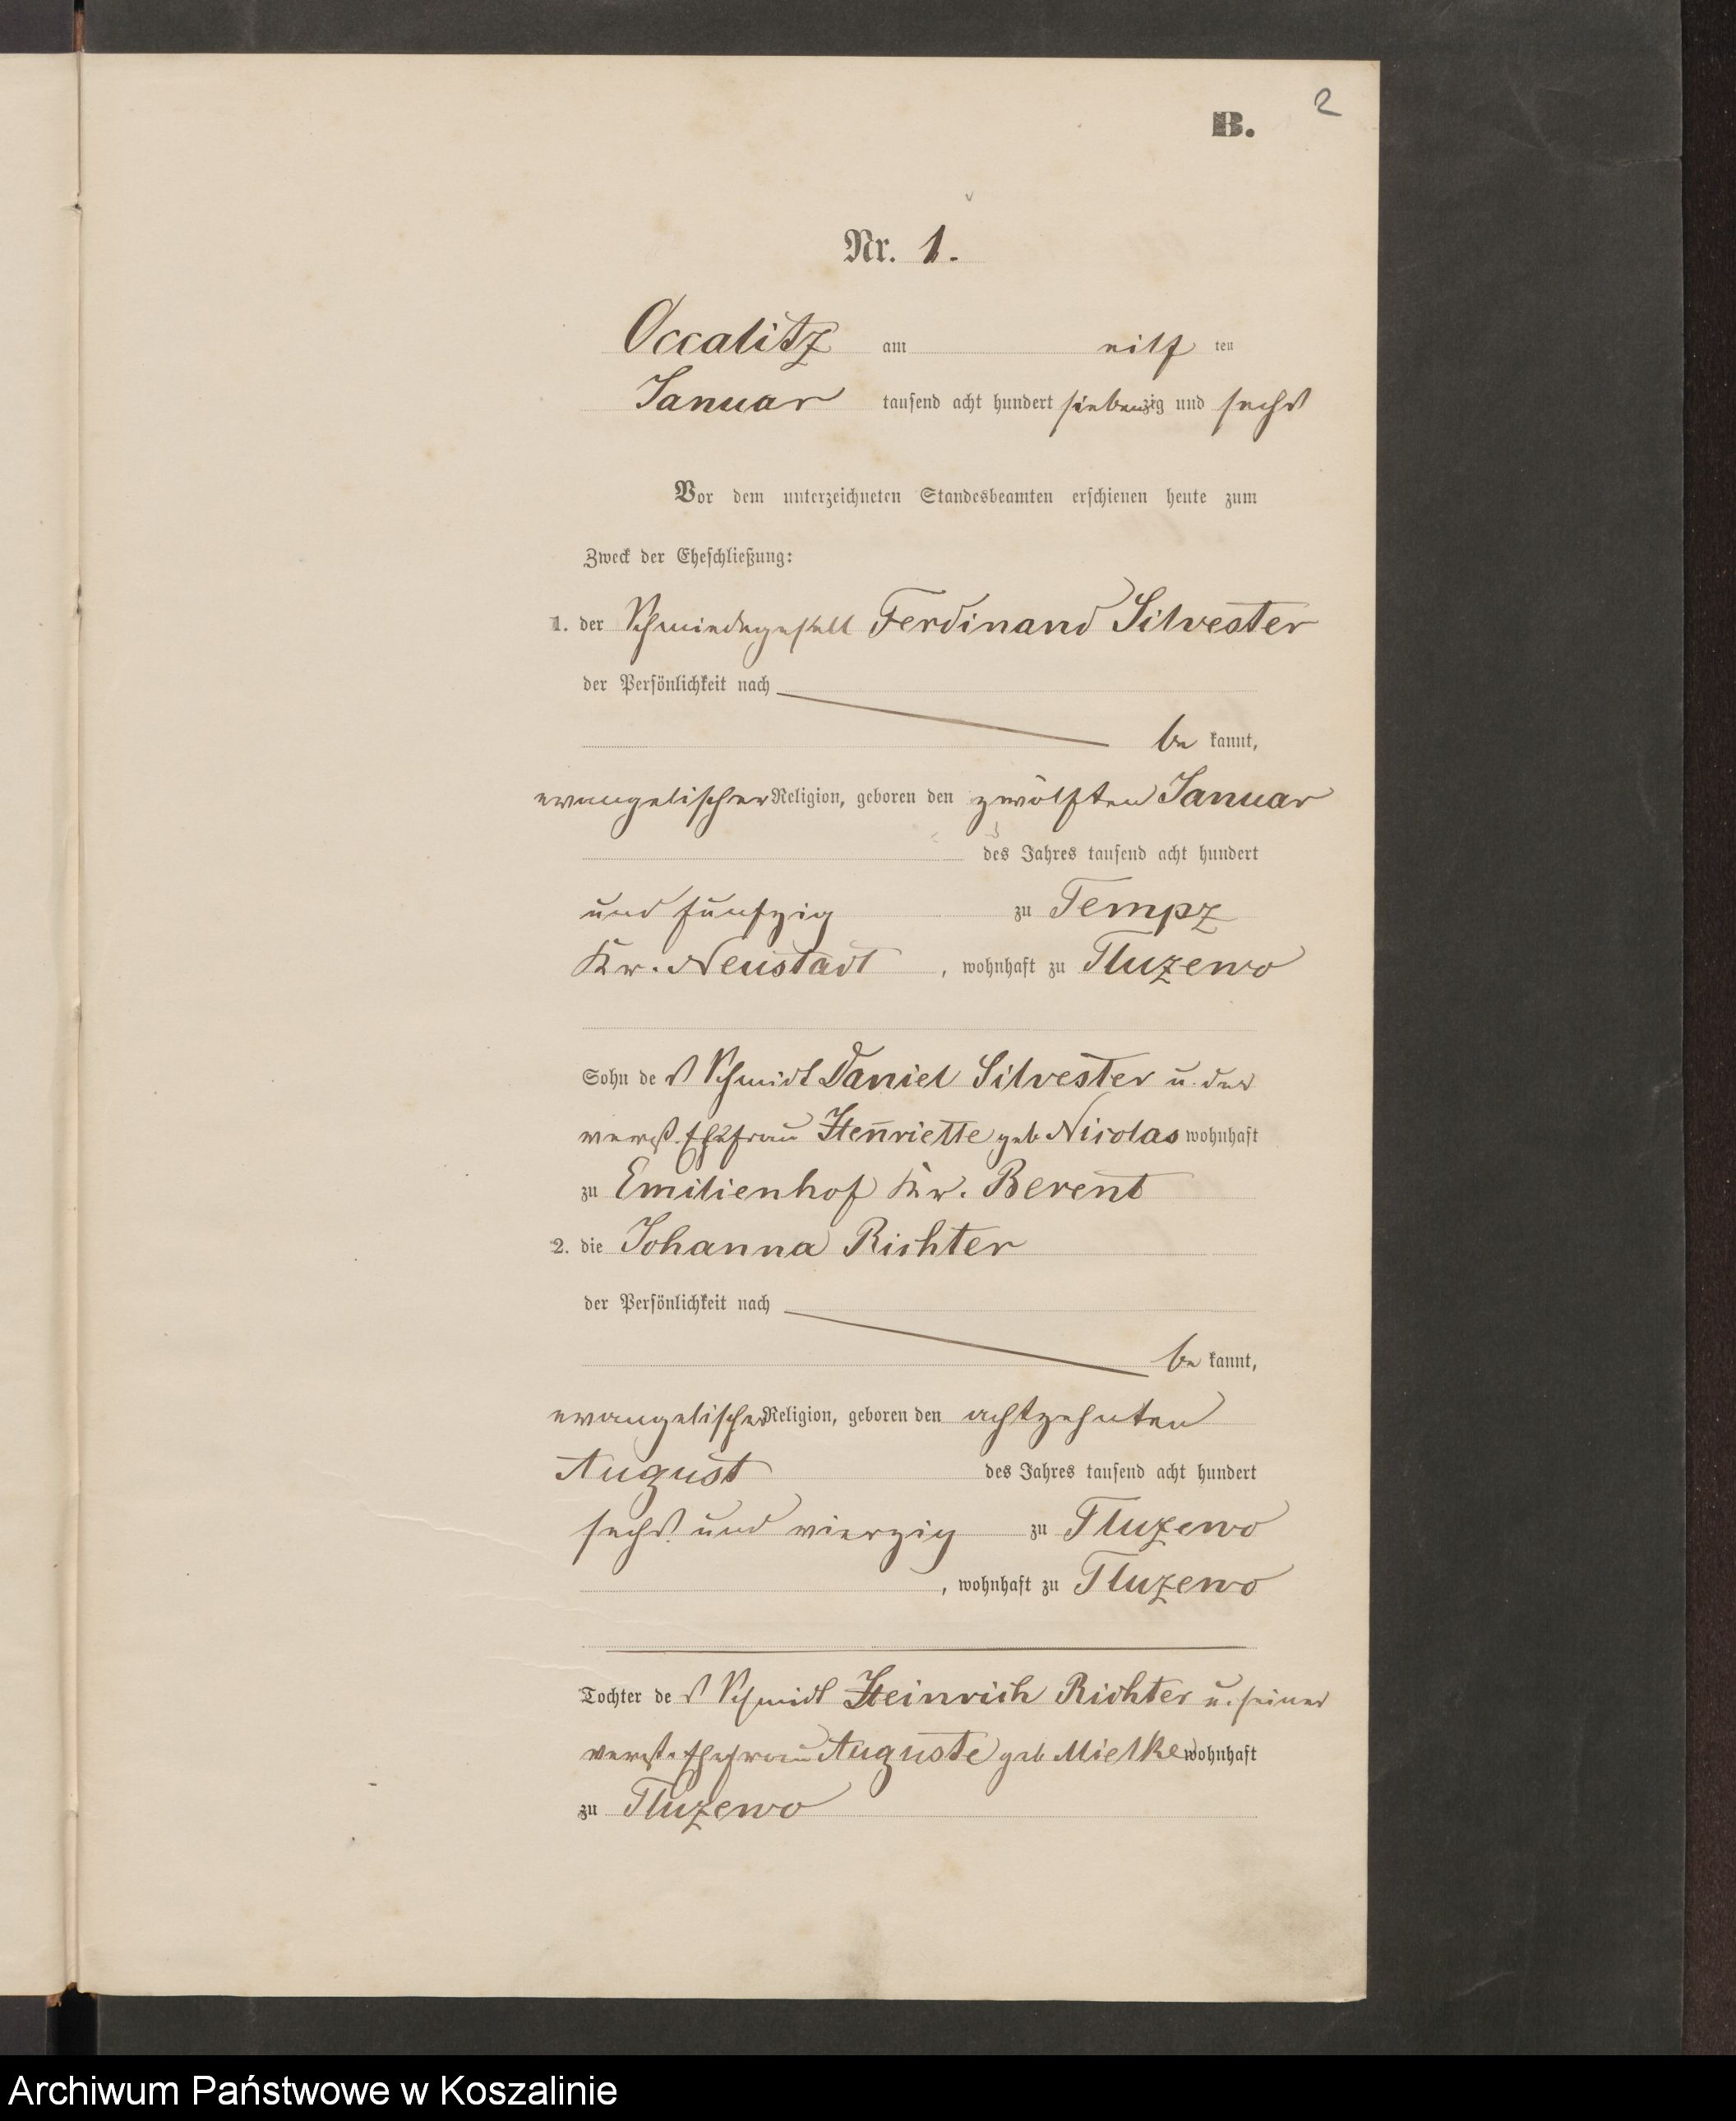 2
B.
Nr. 1.
Occalitz am eilf ten
Januar tausend acht hundert siebenzig und sechs
Vor dem unterzeichneten Standesbeamten erschienen heute zum
Zweck der Eheschließung:
1. der Schmiedegesell Ferdinand Silvester
der Persönlichkeit nach
be kannt,
evangelischer Religion, geboren den zwölften Januar
des Jahres tausend acht hundert
und funfzig zu Tempz
Kr. Neustadt, wohnhaft zu Tluzewo
Sohn des Schmidt Daniel Silvester u. der
verst. Ehefrau Henriette geb Nicolas wohnhaft
zu Emilienhof Kr. Berent
2. die Johanna Richter
der Persönlichkeit nach
be kannt,
evangelischer Religion, geboren den achtzehnten
August des Jahres tausend acht hundert
sechs und vierzig zu Tluzewo
, wohnhaft zu Tluzewo
Tochter des Schmidt Heinrich Richter u. seiner
verst. Ehefrau Auguste geb Mielke wohnhaft
zu Tluzewo
Archiwum Państwowe w Koszalinie